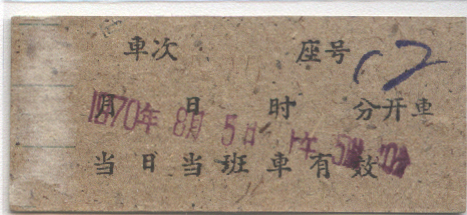 車次 座号 12
月 日 时 分开車
1970年 8月 5日 上午 5时
当日当班車有效